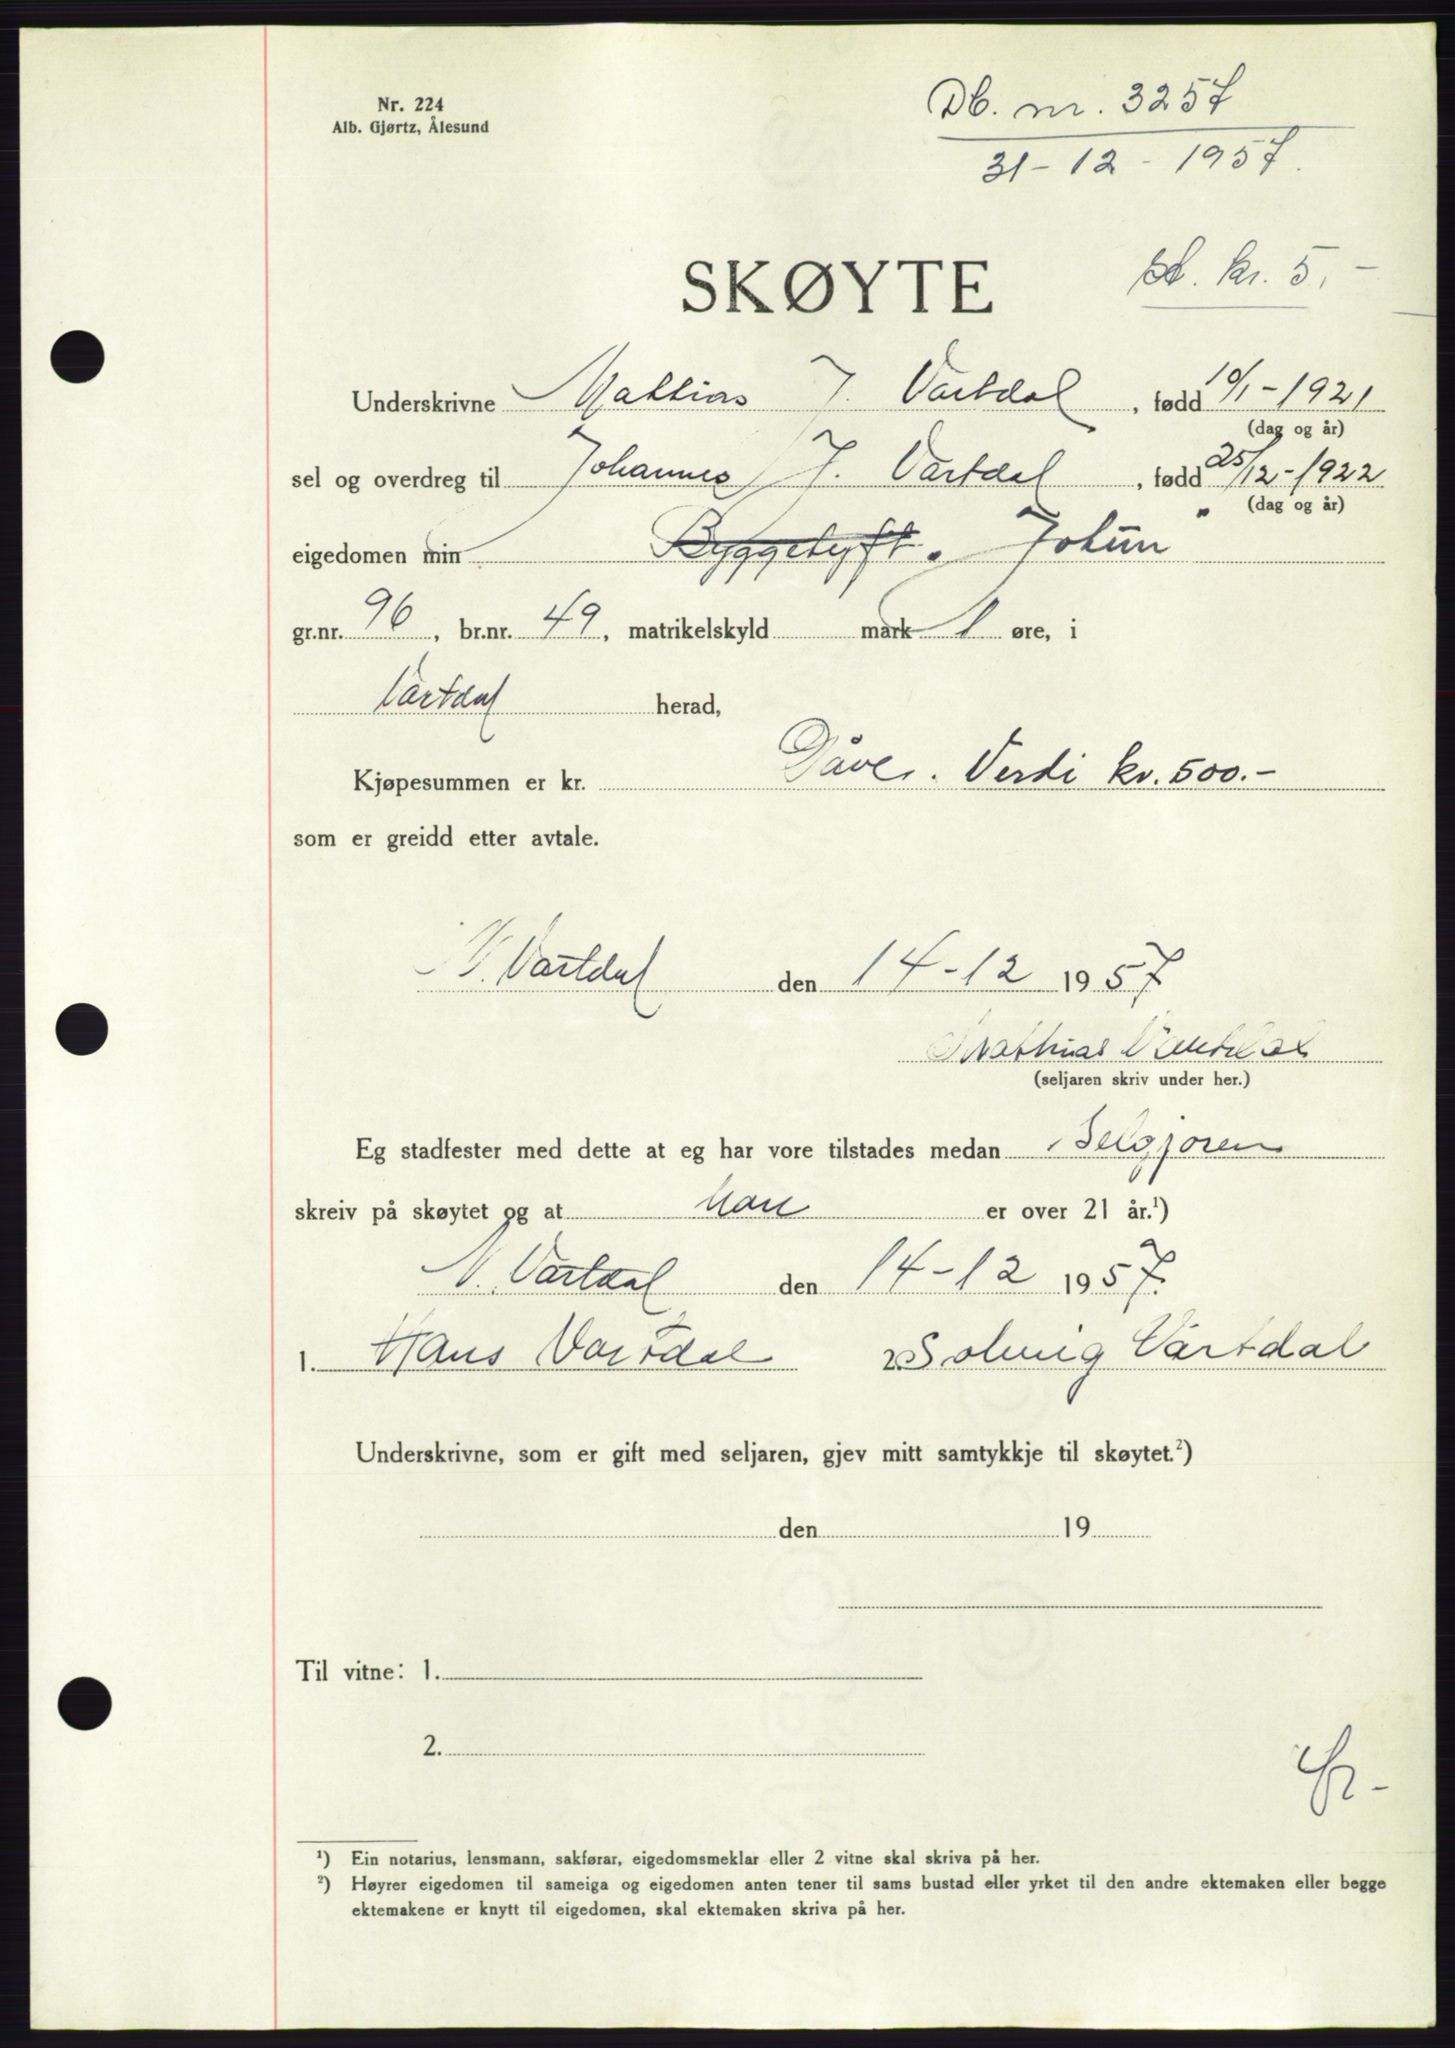 Nr. 224
Alb. Gjørtz, Ålesund
Db. nr. 3257
31-12-1957.
SKØYTE
st. kr. 5,-
Underskrivne Mathias J. Vartdal, fødd 10/1-1921
(dag og år)
sel og overdreg til Johannes J. Vartdal, fødd 25/12-1922
(dag og år)
eigedomen min
gr.nr. 96, br.nr. 49, matrikelskyld mark 1 øre, i
Vartdal herad,
Kjøpesummen er kr. Gåve. Verdi kr. 500.-
som er greidd etter avtale.
N. Vartdal den 14-12 1957
Mathias Vartdal
(seljaren skriv under her.)
Eg stadfester med dette at eg har vore tilstades medan
skreiv på skøytet og at han er over 21 år.¹)
N. Vartdal den 14-12 1957.
1. Hans Vartdal 2. Solveig Vartdal
Underskrivne, som er gift med seljaren, gjev mitt samtykkje til skøytet.²)
den 19
Til vitne: 1.
2.
¹) Ein notarius, lensmann, sakførar, eigedomsmeklar eller 2 vitne skal skriva på her.
²) Høyrer eigedomen til sameiga og eigedomen anten tener til sams bustad eller yrket til den andre ektemaken eller begge
ektemakene er knytt til eigedomen, skal ektemaken skriva på her.